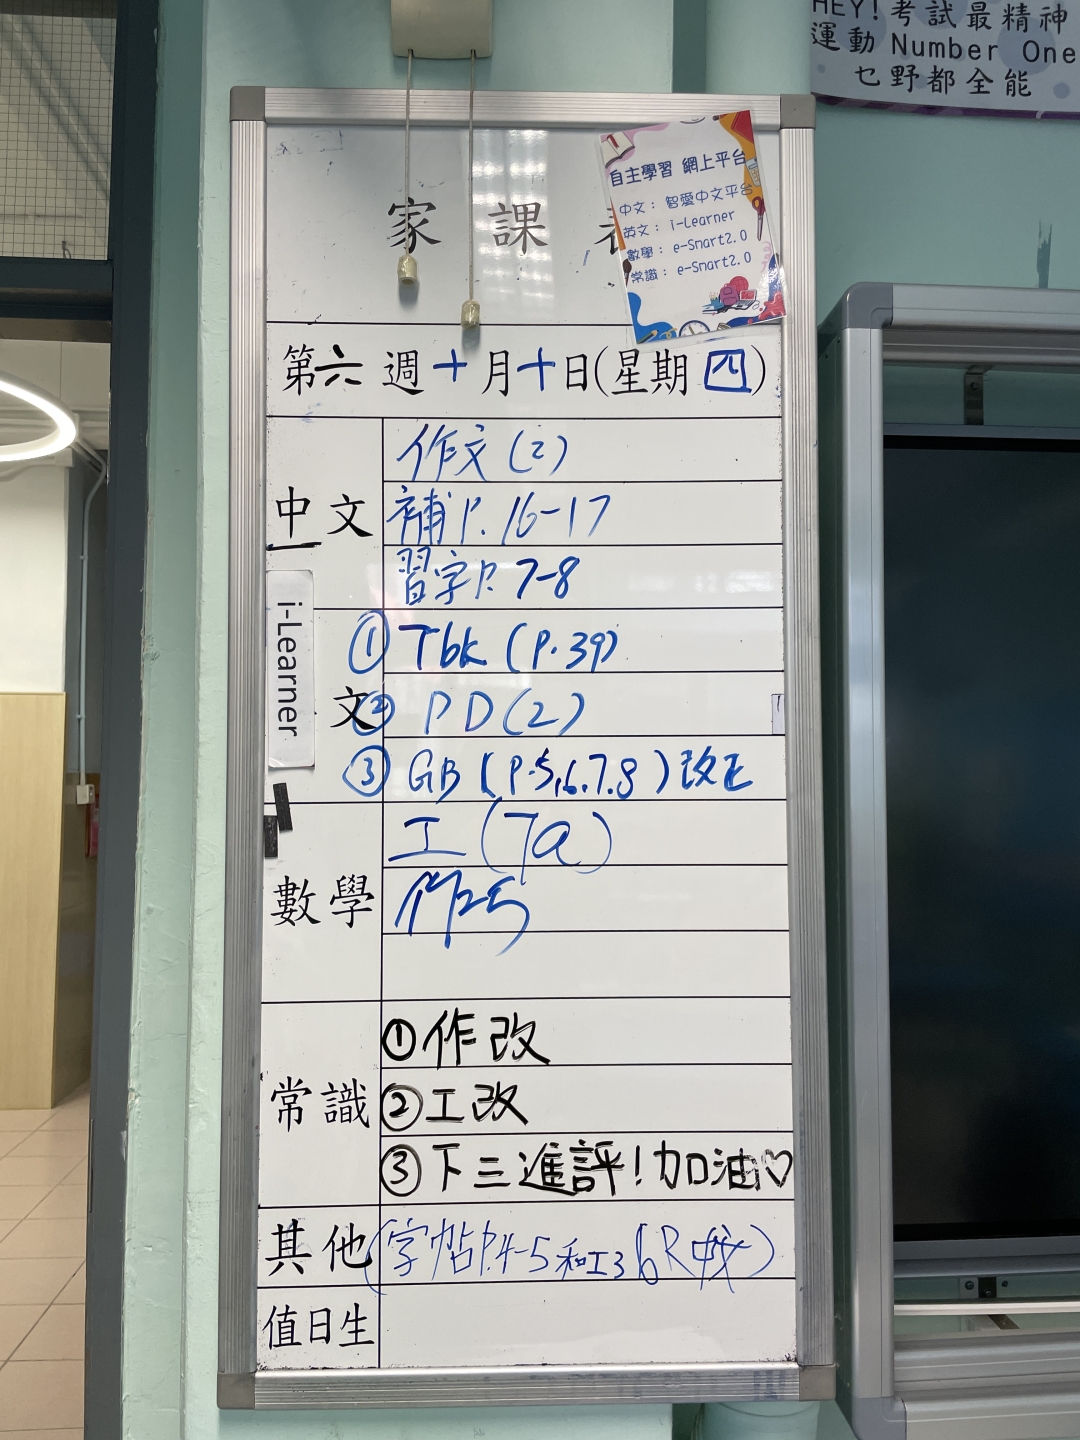 HEY!考試最精神
運動 Number One
乜野都全能
自主學習 網上平台
中文： 智愛中文平台
英文： i-Learner
數學： e-Smart2.0
常識： e-Smart2.0
家課
第六週十月十日(星期四)
中文
作文(2)
補P.16-17
習字P.7-8
i-Learner
文
① Tbk (P.39)
② PD(2)
③ GB (P.5,6,7,8)改正
數學
工(7a)
常識
①作改
②工改
③下三進評!加油♡
其他
(字帖P.4-5和工3 6R
值日生